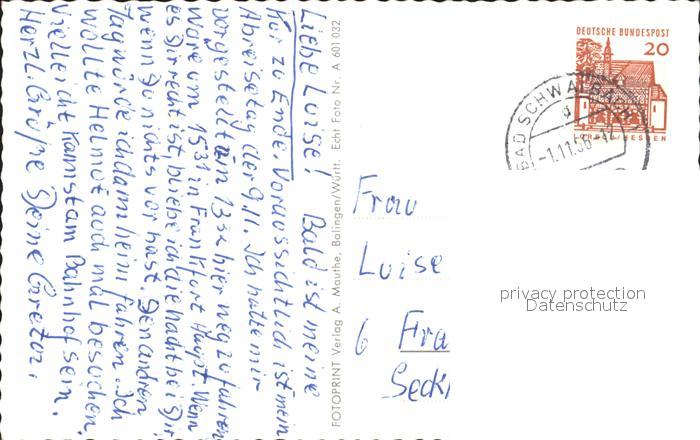 Liebe Luise! Bald ist meine
Kur zu Ende. Voraussichtlich ist mein
Abreisetag der 9.11. Ich hatte mir
vorgestellt um 13 hier weg zu fahren
wäre um 15 31 in Frankfurt Haupt. Wenn
es Dir recht ist bliebe ich die Nacht bei Dir
wenn Du nichts vor hast. Den andren
Tag würde ich dann heim fahren. Ich
wollte Helmut auch mal besuchen,
vielleicht kannst am Bahnhof sein.
Herzl. Grüße Deine
FOTOPRINT Verlag A. Mauthe, Balingen/Württ. Echt Foto Nr. A 601 032
DEUTSCHE BUNDESPOST
20
LORSCH/HESSEN
BAD SCHWALBA
-1.11.66-
Frau
Luise
6 Fra
Seck
privacy protection
Datenschutz